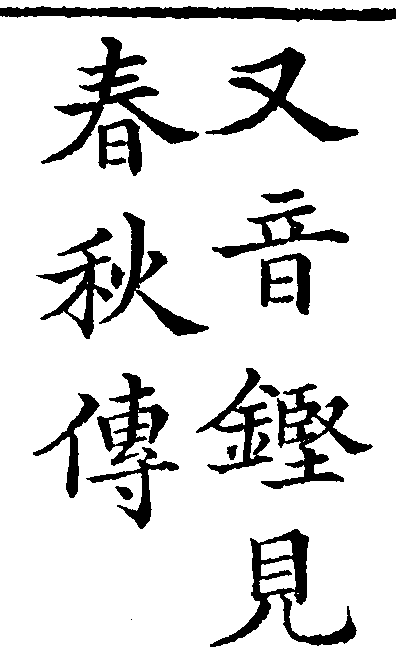 又音鏗見
春秋傳